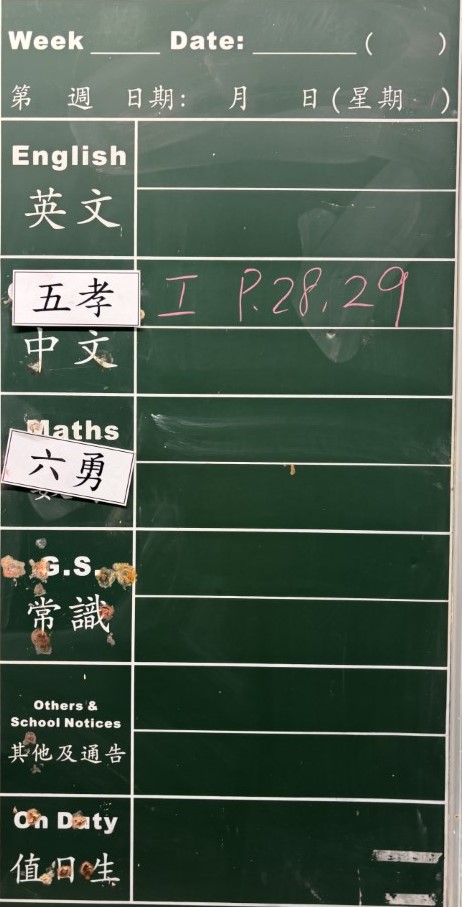 Week ______ Date: _________ ( )
第 週 日期: 月 日(星期 )
English
英文
五孝 I P.28,29
中文
Maths
六勇
G.S.
常識
Others &
School Notices
其他及通告
On Duty
值日生